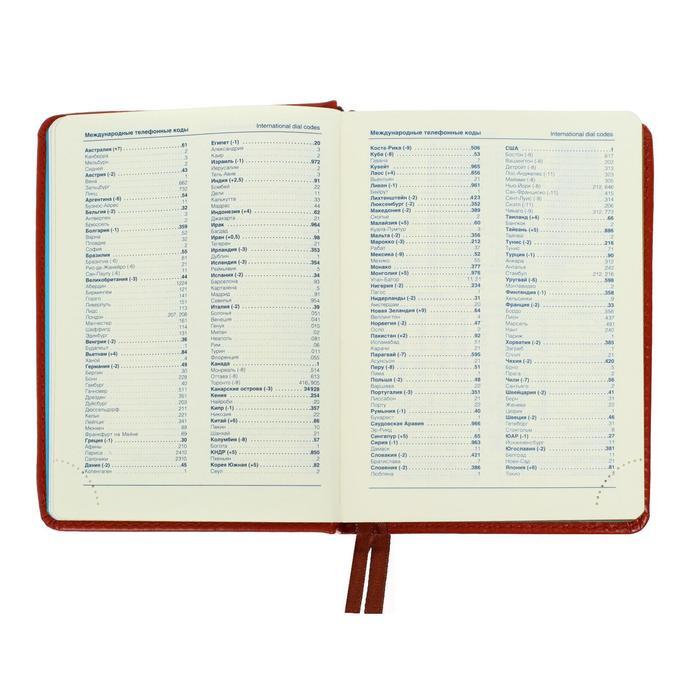 Международные телефонные коды
International dial codes
Австралия (+7) 61
Канберра 2
Мельбурн 3
Сидней 2
Австрия (-2) 43
Вена 1
Зальцбург 662
Линц 732
Аргентина (-6) 54
Буэнос-Айрес 11
Бельгия (-2) 32
Антверпен 3
Брюссель 2
Болгария (-1) 359
Варна 52
Пловдив 32
София 2
Бразилия 55
Бразилиа (-6) 61
Рио-де-Жанейро (-6) 21
Сан-Паулу (-6) 11
Великобритания (-3) 44
Абердин 1224
Бирмингем 121
Глазго 141
Ливерпуль 151
Лидс 113
Лондон 207, 208
Манчестер 161
Шеффилд 114
Эдинбург 131
Венгрия (-2) 36
Будапешт 1
Вьетнам (+4) 84
Ханой 4
Германия (-2) 49
Берлин 30
Бонн 228
Гамбург 40
Ганновер 511
Дрезден 351
Дуйсбург 203
Дюссельдорф 211
Кельн 221
Лейпциг 341
Мюнхен 89
Франкфурт на Майне 69
Греция (-1) 30
Афины 210
Лариса 2410
Салоники 2310
Дания (-2) 45
Копенгаген 1
Египет (-1) 20
Александрия 3
Каир 2
Израиль (-1) 972
Иерусалим 2
Тель-Авив 3
Индия (+2,5) 91
Бомбей 22
Дели 11
Калькутта 33
Мадрас 44
Индонезия (+4) 62
Джакарта 21
Ирак 964
Багдад 1
Иран (+0,5) 98
Тегеран 21
Ирландия (-3) 353
Дублин 1
Исландия (-3) 354
Рейкьявик 5
Испания (-2) 34
Барселона 93
Картахена 5
Мадрид 91
Севилья 954
Италия (-2) 39
Болонья 051
Венеция 041
Генуя 010
Милан 02
Неаполь 081
Рим 06
Турин 011
Флоренция 055
Канада 1
Монреаль (-8) 514
Оттава (-8) 613
Торонто (-8) 416, 905
Канарские острова (-3) 34928
Кения 254
Найроби 20
Кипр (-1) 357
Никозия 22
Китай (+6) 86
Пекин 10
Шанхай 21
Колумбия (-8) 57
Богота 1
КНДР (+5) 850
Пхеньян 2
Корея Южная (+5) 82
Сеул 2
Международные телефонные коды
Коста-Рика (-9) 506
Куба (-8) 53
Гавана 7
Кувейт 965
Лаос (+4) 856
Вьентьян 21
Ливан (-1) 961
Бейрут 1
Лихтенштейн (-2) 423
Люксембург (-2) 352
Македония (-2) 389
Скопье 2
Малайзия (+5) 60
Куала-Лумпур 3
Мальта (-2) 356
Марокко (-3) 212
Рабат 37
Мексика (-9) 52
Мехико 55
Монако 377
Монголия (+5) 976
Улан-Батор 11 21
Нигерия (-2) 234
Лагос 1
Нидерланды (-2) 31
Амстердам 20
Новая Зеландия (+9) 64
Веллингтон 4
Норвегия (-2) 47
Осло 2
Пакистан (+2) 92
Исламабад 51
Карачи 21
Парагвай (-7) 595
Асунсьон 21
Перу (-8) 51
Лима 1
Польша (-2) 48
Варшава 22
Португалия (-3) 351
Лиссабон 21
Порту 22
Румыния (-1) 40
Бухарест 1
Саудовская Аравия 966
Эр-Рияд 1
Сингапур (+5) 65
Сирия (-1) 963
Дамаск 11
Словакия (-2) 421
Братислава 7
Словения (-2) 386
Любляна 1
США 1
Бостон (-8) 617
Вашингтон (-8) 202
Детройт (-8) 313
Лос-Анджелес (-11) 323
Майами (-8) 305
Нью-Йорк (-8) 212, 646
Сан-Франциско (-11) 415
Сент-Луис (-9) 314
Сиэтл (-11) 206
Чикаго (-9) 312, 773
Таиланд (+4) 66
Бангкок 2
Тайвань (+5) 886
Тайпей 2
Тунис (-2) 216
Тунис 71
Турция (-1) 90
Анкара 312
Анталья 242
Стамбул 212, 216
Уругвай (-6) 598
Монтевидео 2
Финляндия (-1) 358
Хельсинки 9
Франция (-2) 33
Бордо 556
Лион 437
Марсель 491
Нант 240
Париж 1
Хорватия (-2) 385
Загреб 1
Сплит 21
Чехия (-2) 420
Брно 5
Прага 2
Чили (-7) 56
Сантьяго 2
Швейцария (-2) 41
Берн 31
Женева 22
Цюрих 1
Швеция (-2) 46
Гетеборг 31
Стокгольм 8
ЮАР (-1) 27
Йоханнесбург 11
Югославия (-2) 381
Белград 11
Нови-Сад 21
Япония (+6) 81
Токио 3